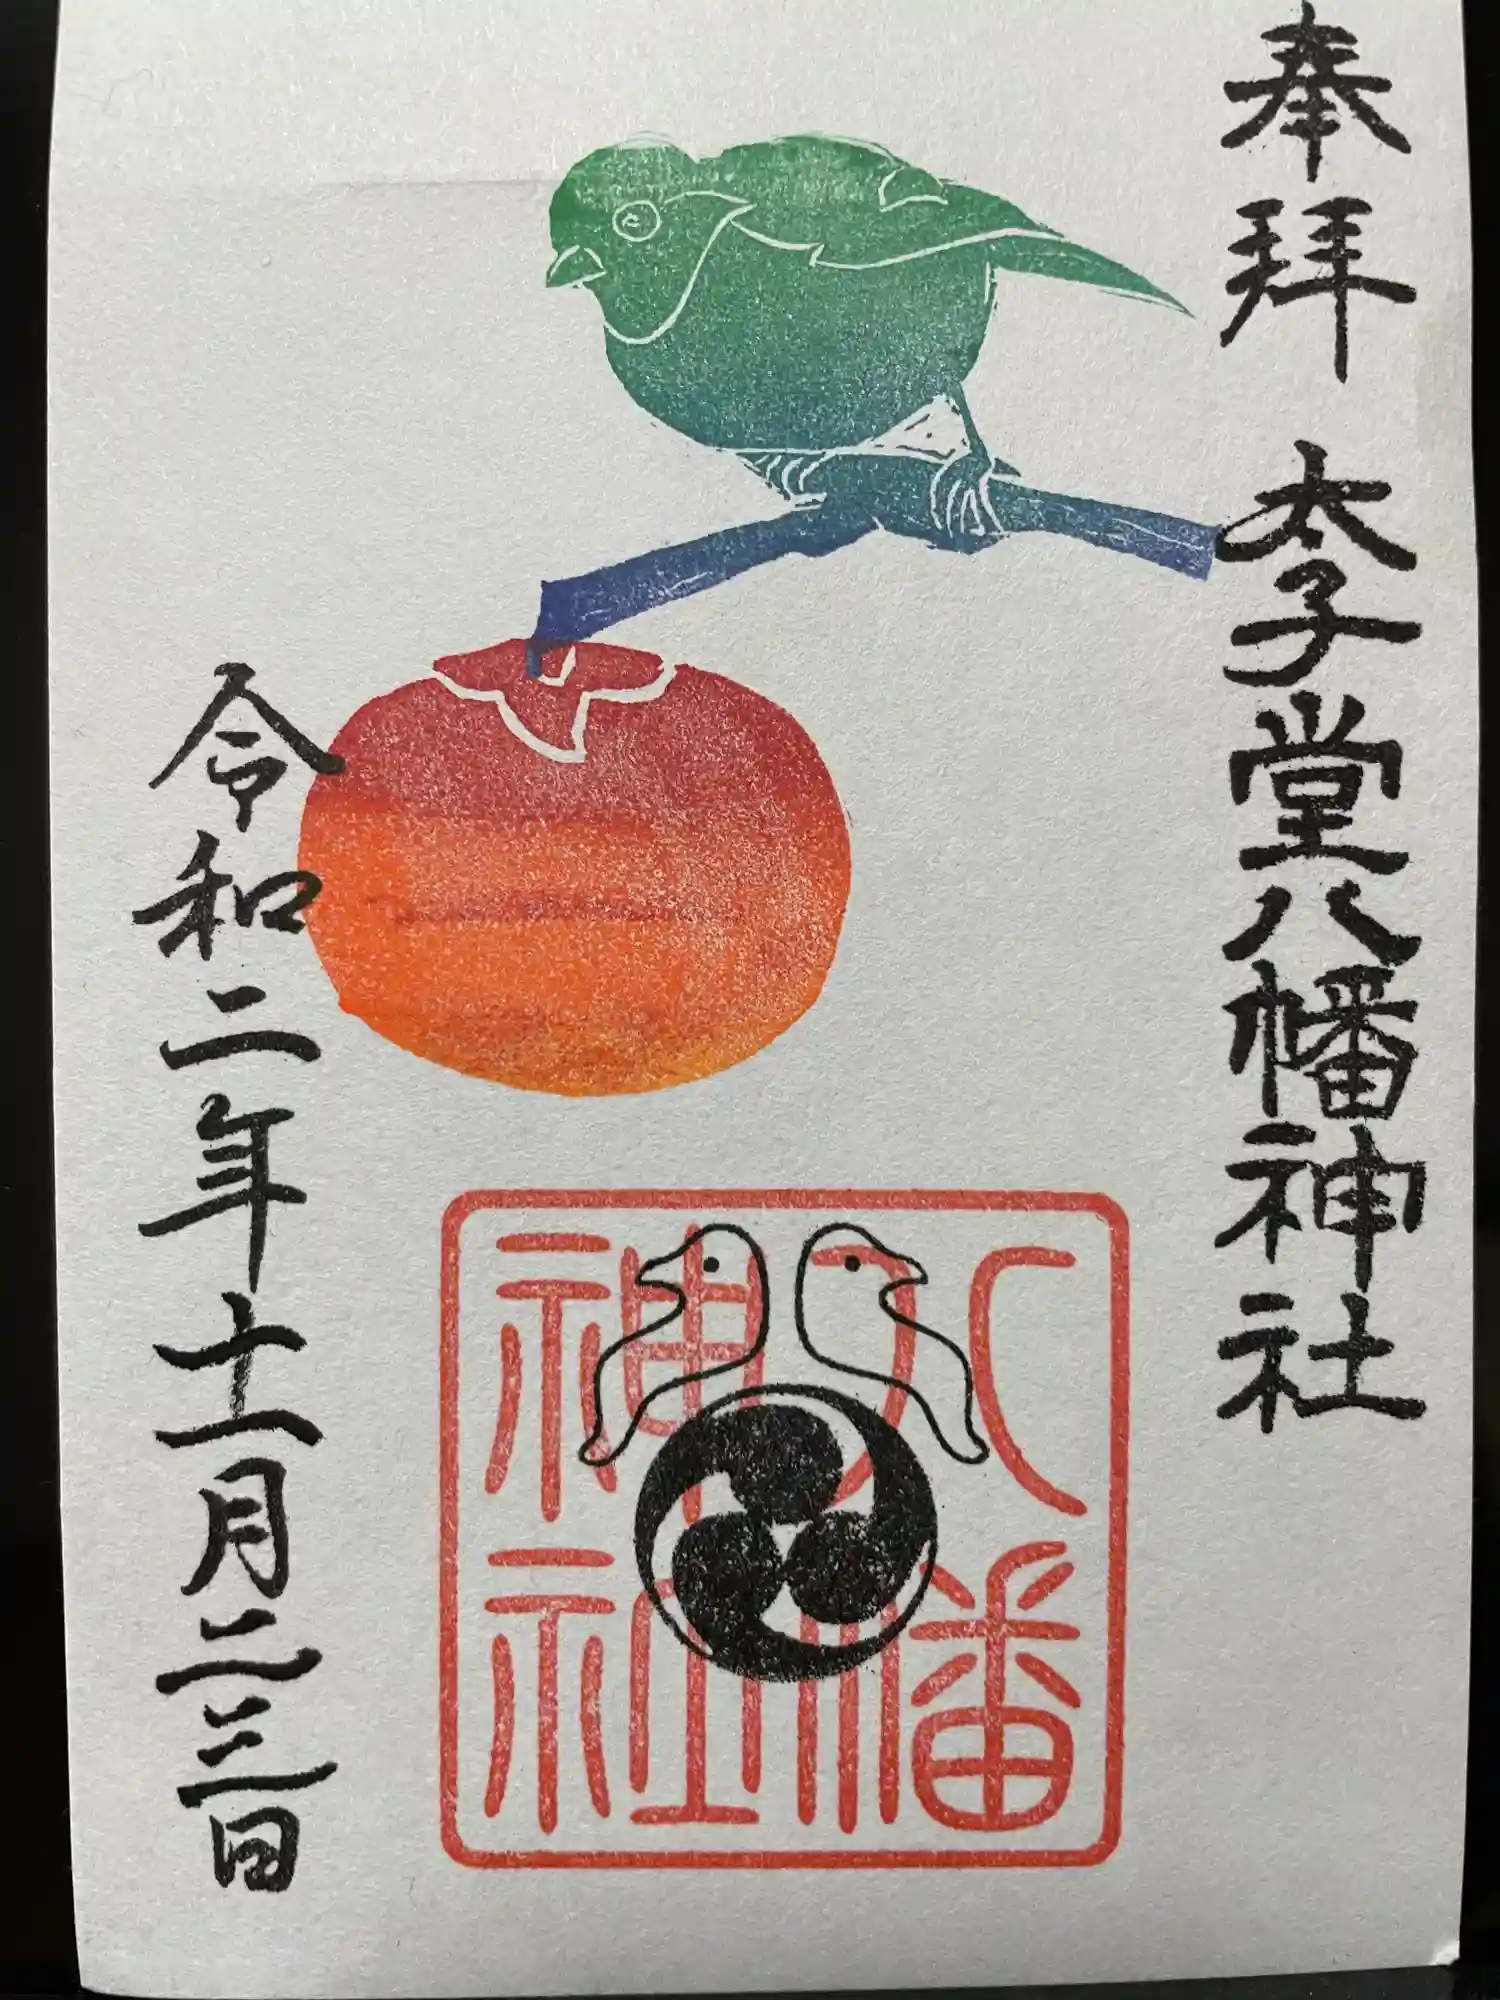 奉拝
太子堂八幡神社
八幡
神社
令和二年十一月二三日